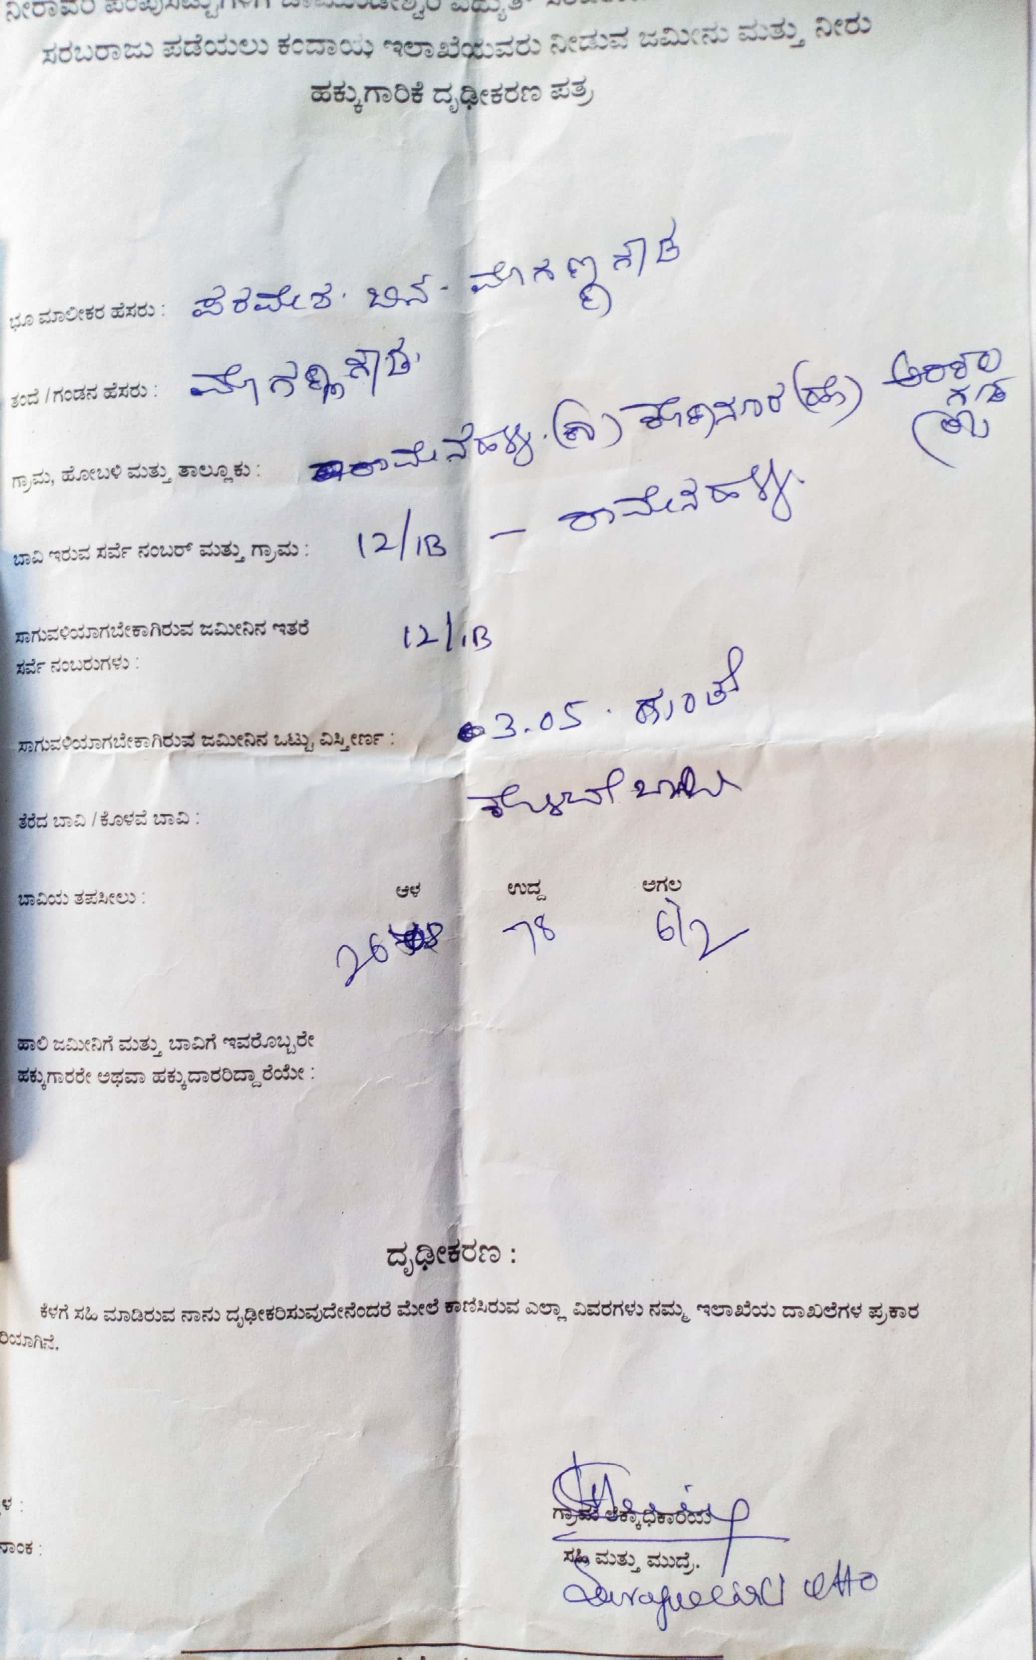 ಸರಬರಾಜು ಪಡೆಯಲು ಕಂದಾಯ ಇಲಾಖೆಯವರು ನೀಡುವ ಜಮೀನು ಮತ್ತು ನೀರು
ಹಕ್ಕುಗಾರಿಕೆ ದೃಢೀಕರಣ ಪತ್ರ
ಭೂ ಮಾಲೀಕರ ಹೆಸರು : ಪರಮೇಶ. ಬಿನ್ - ಮೊಗಣ್ಣಗೌಡ
ತಂದೆ / ಗಂಡನ ಹೆಸರು : ಮೊಗಣ್ಣಗೌಡ.
ಗ್ರಾಮ, ಹೋಬಳಿ ಮತ್ತು ತಾಲ್ಲೂಕು : ಕಾಮೇನಹಳ್ಳಿ.
ಬಾವಿ ಇರುವ ಸರ್ವೆ ನಂಬರ್ ಮತ್ತು ಗ್ರಾಮ : 12/1B - ಕಾಮೇನಹಳ್ಳಿ.
ಸಾಗುವಳಿಯಾಗಬೇಕಾಗಿರುವ ಜಮೀನಿನ ಇತರೆ
ಸರ್ವೆ ನಂಬರುಗಳು : 12/1B
ಸಾಗುವಳಿಯಾಗಬೇಕಾಗಿರುವ ಜಮೀನಿನ ಒಟ್ಟು ವಿಸ್ತೀರ್ಣ : 3.05 . ಗುಂಟೆ
ತೆರೆದ ಬಾವಿ / ಕೊಳವೆ ಬಾವಿ : ಕೊಳವೆ ಬಾವಿ
ಬಾವಿಯ ತಪಸೀಲು : ಆಳ ಉದ್ದ ಅಗಲ
26 78 6/2
ಹಾಲಿ ಜಮೀನಿಗೆ ಮತ್ತು ಬಾವಿಗೆ ಇವರೊಬ್ಬರೇ
ಹಕ್ಕುಗಾರರೇ ಅಥವಾ ಹಕ್ಕುದಾರರಿದ್ದಾರೆಯೇ :
ದೃಢೀಕರಣ :
ಕೆಳಗೆ ಸಹಿ ಮಾಡಿರುವ ನಾನು ದೃಢೀಕರಿಸುವುದೇನೆಂದರೆ ಮೇಲೆ ಕಾಣಿಸಿರುವ ಎಲ್ಲಾ ವಿವರಗಳು ನಮ್ಮ ಇಲಾಖೆಯ ದಾಖಲೆಗಳ ಪ್ರಕಾರ
ರಿಯಾಗಿನೆ.
ಗ್ರಾಮ ಲೆಕ್ಕಾಧಿಕಾರಿಯ
ನಾಂಕ :
ಸಹಿ ಮತ್ತು ಮುದ್ರೆ.